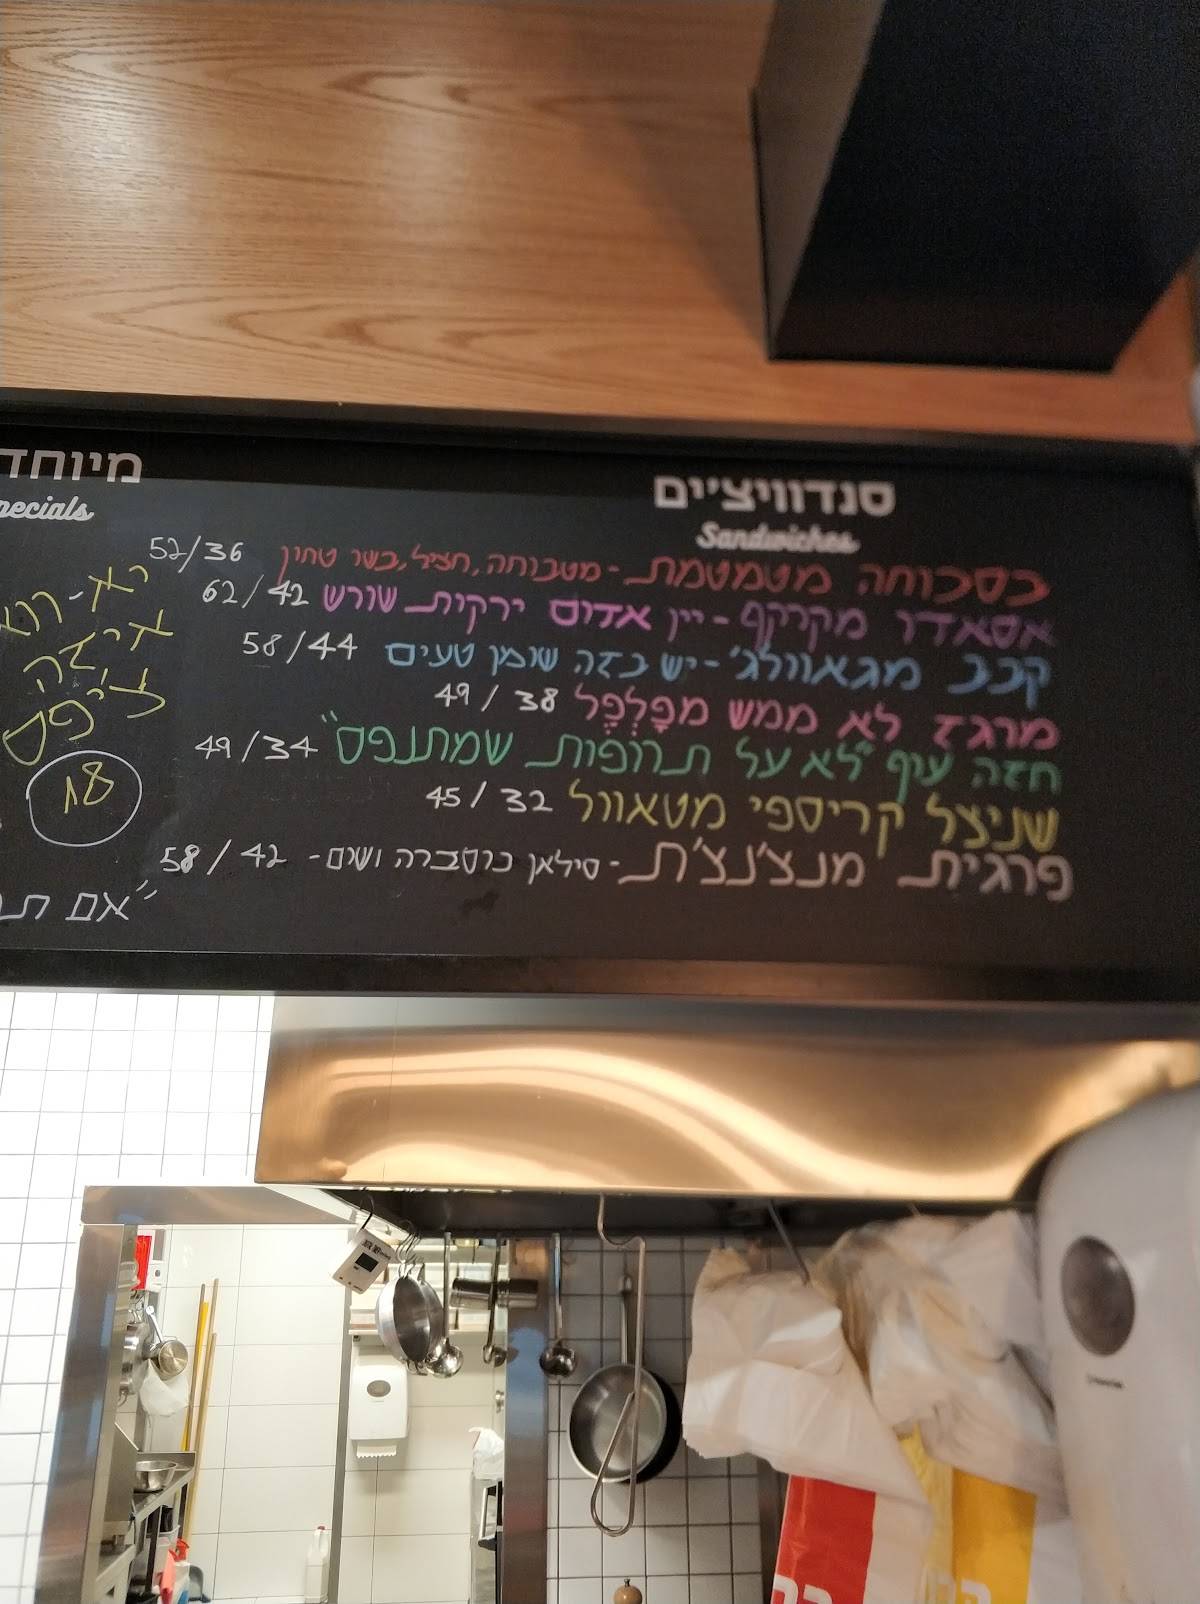 סנדוויצ'ים
Sandwiches
כסכוחה מטמטמת - מטבוחה, חציל, בשר טחון 52/36
אסאדו מקרקף - יין אדום ירקות שורש 62/42
קבב מגאוולג' - יש בזה שומן טעים 58/44
מרגז לא ממש מפָלְפֶל 49/38
חזה עוף "לא על תרופות שמתנפס" 49/34
שניצל קריספי מטאוול 45/32
פרגית מנצ'נצ'ת - סילאן כוסברה ושום - 58/42
מיוחד
pecials
צ'יפס
18
"אם